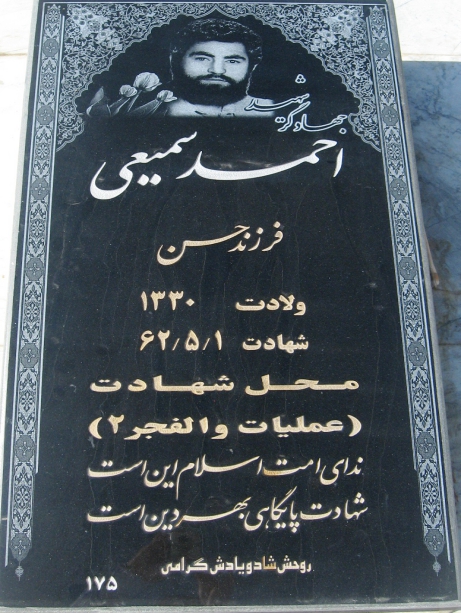 شهید
جهادگر
احمد سمیعی
فرزند حسن
ولادت ۱۳۳۰
شهادت ۶۲/۵/۱
محل شهادت
(عملیات والفجر۲)
ندای امت اسلام این است
شهادت پایگاهی بهر دین است
روحش شاد و یادش گرامی
۱۷۵